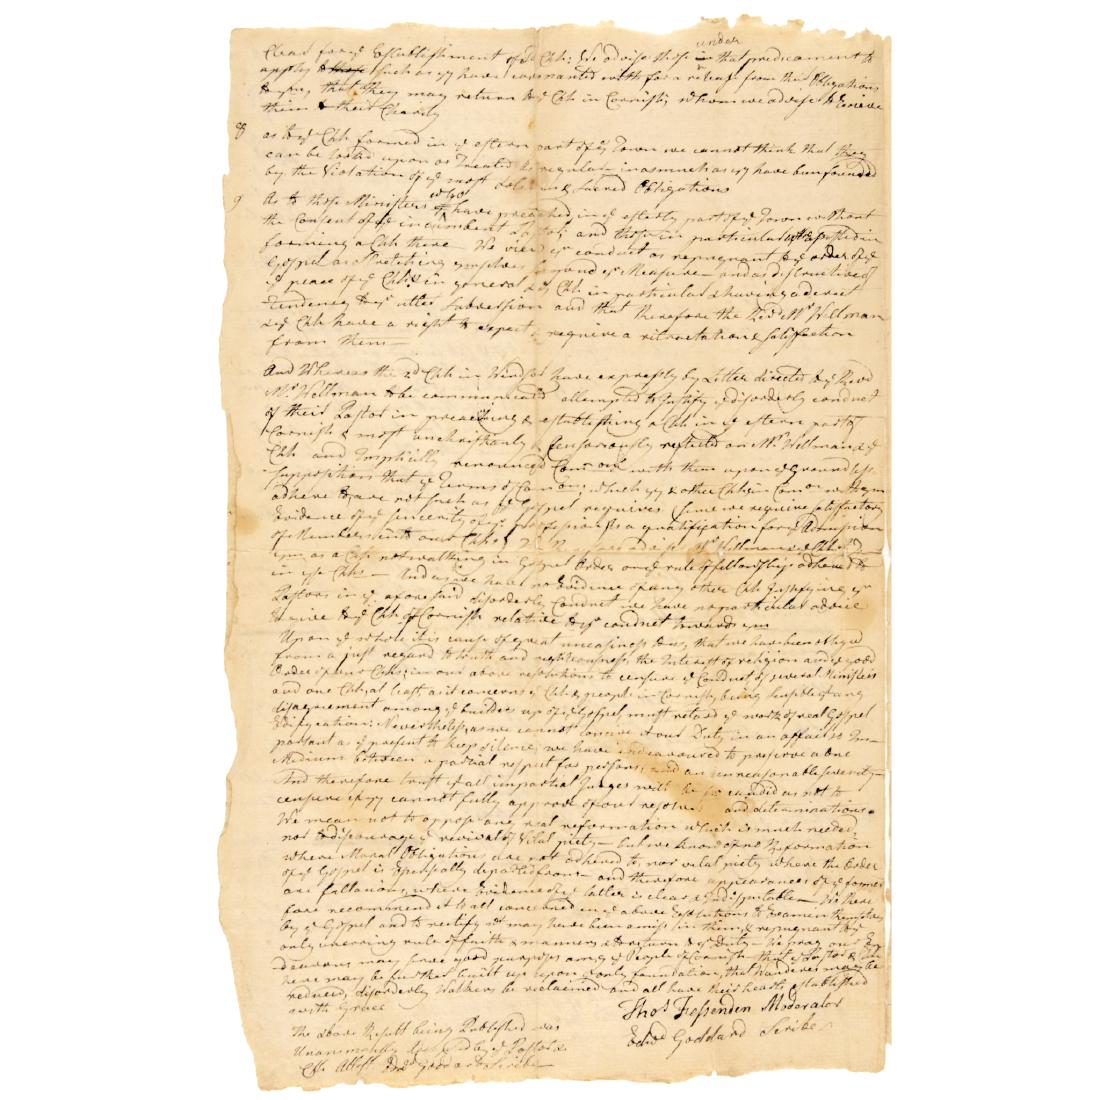 under
Clear for ye Establishment of sd Chh: We advise those in that predicament to
apply to those such as yy have covenanted with for a release from their Obligations
to ym, that they may return to ye Chh in Cornish, whom we advise to receive
them to their Charity
8 as to ye Chh formed in ye eastern part of ye Town we cannot think that they
can be looked upon or treated as regular inasmuch as yy have been founded
by the Violation of ye most solemn & Sacred Obligations
who
9 As to those Ministers have preached in ye easterly part of ye Town without
the Consent of ye incumbent Pastor, and those in particular who assisted in
forming a Chh there. We view yr conduct as repugnant to ye order of ye
Gospel as stretching ymselves beyond yr Measure — and as destructive of
ye peace of ye Chhs in general & ye Chh in particular & having a direct
Tendency to yr utter Subversion and that therefore the Revd Mr Wellman
& ye Chh have a right to expect & require a retractation & satisfaction
from them —
And Whereas the 2d Chh in Windsor have expressly by Letter directed to ye Revd
Mr Wellman to be communicated attempted to justify ye disorderly conduct
of their Pastor in preaching & establishing a Chh in ye eastern part of
Cornish & most unchristianly & Censoriously reflected on Mr Wellman & ye
Chh and Implicitly renounced Comon with them upon ye groundless
Supposition that ye Terms of Comon, which yy & other Chhs in Comon with ym
adhere to are not such as ye Gospel requires since we require satisfactory
Evidence of ye sincerity of yr profession as a qualification for ye Admission
of Members into our Chhs Mr Wellman & ye Chh
ym as a Chh not walking in Gospel Order on ye rule of fellowship adhered to
in yse Chhs — And as we have no Evidence of any other Chh justifying yr
Pastors in ye aforesaid disorderly Conduct we have no particular advice
to give to ye Chh of Cornish relative to yr conduct towards ym
Upon ye whole it is cause of great uneasiness to us, that we have been obliged
from a just regard to truth and righteousness, the Interest of religion and ye good
Order of our Chhs, in our above resolutions to censure ye Conduct of several Ministers
and one Chh at least, as it concerns ye Chh & people in Cornish, being sensible yt any
disagreement among ye builders up of ye Gospel must retard ye work of real Gospel
Edification: Nevertheless, as we cannot conceive it our Duty in an affair so Im-
portant as ye present to keep silence, we have endeavoured to preserve a one
Medium between a partial respect for persons, and an unreasonable severity —
And therefore trust yt all impartial Judges will be so candid as not to
censure if yy cannot fully approve of our resolves and determinations.
We mean not to oppose any real reformation which is much needed,
nor to discourage ye revival of Vital piety — but we know of no Reformation
where Moral Obligations are not adhered to, nor vital piety where the Order
of ye Gospel is Especially departed from — and therefore appearances of ye former
are fallacious, where Evidence of ye latter is clear & Indisputable — We there
fore recommend it to all concerned in ye above Resolutions to Examen themselves
by ye Gospel and to rectify wt may have been amiss in them, & repugnant to ye
only unerring rule of faith & manners & to return to yr Duty — We pray our En
deavours may serve good purposes among ye People of Cornish — that ye Pastor & Chh
here may be further built up upon ye only foundation, that Wanderers may be
reduced, disorderly Walkers be reclaimed and all have their hearts established
with Grace
Thos Fessenden Moderator
Edwd Goddard Scribe
The above Result being Published was
Unanimously by ye Pastor &
Chh Attest Edwd Goddard Scribe